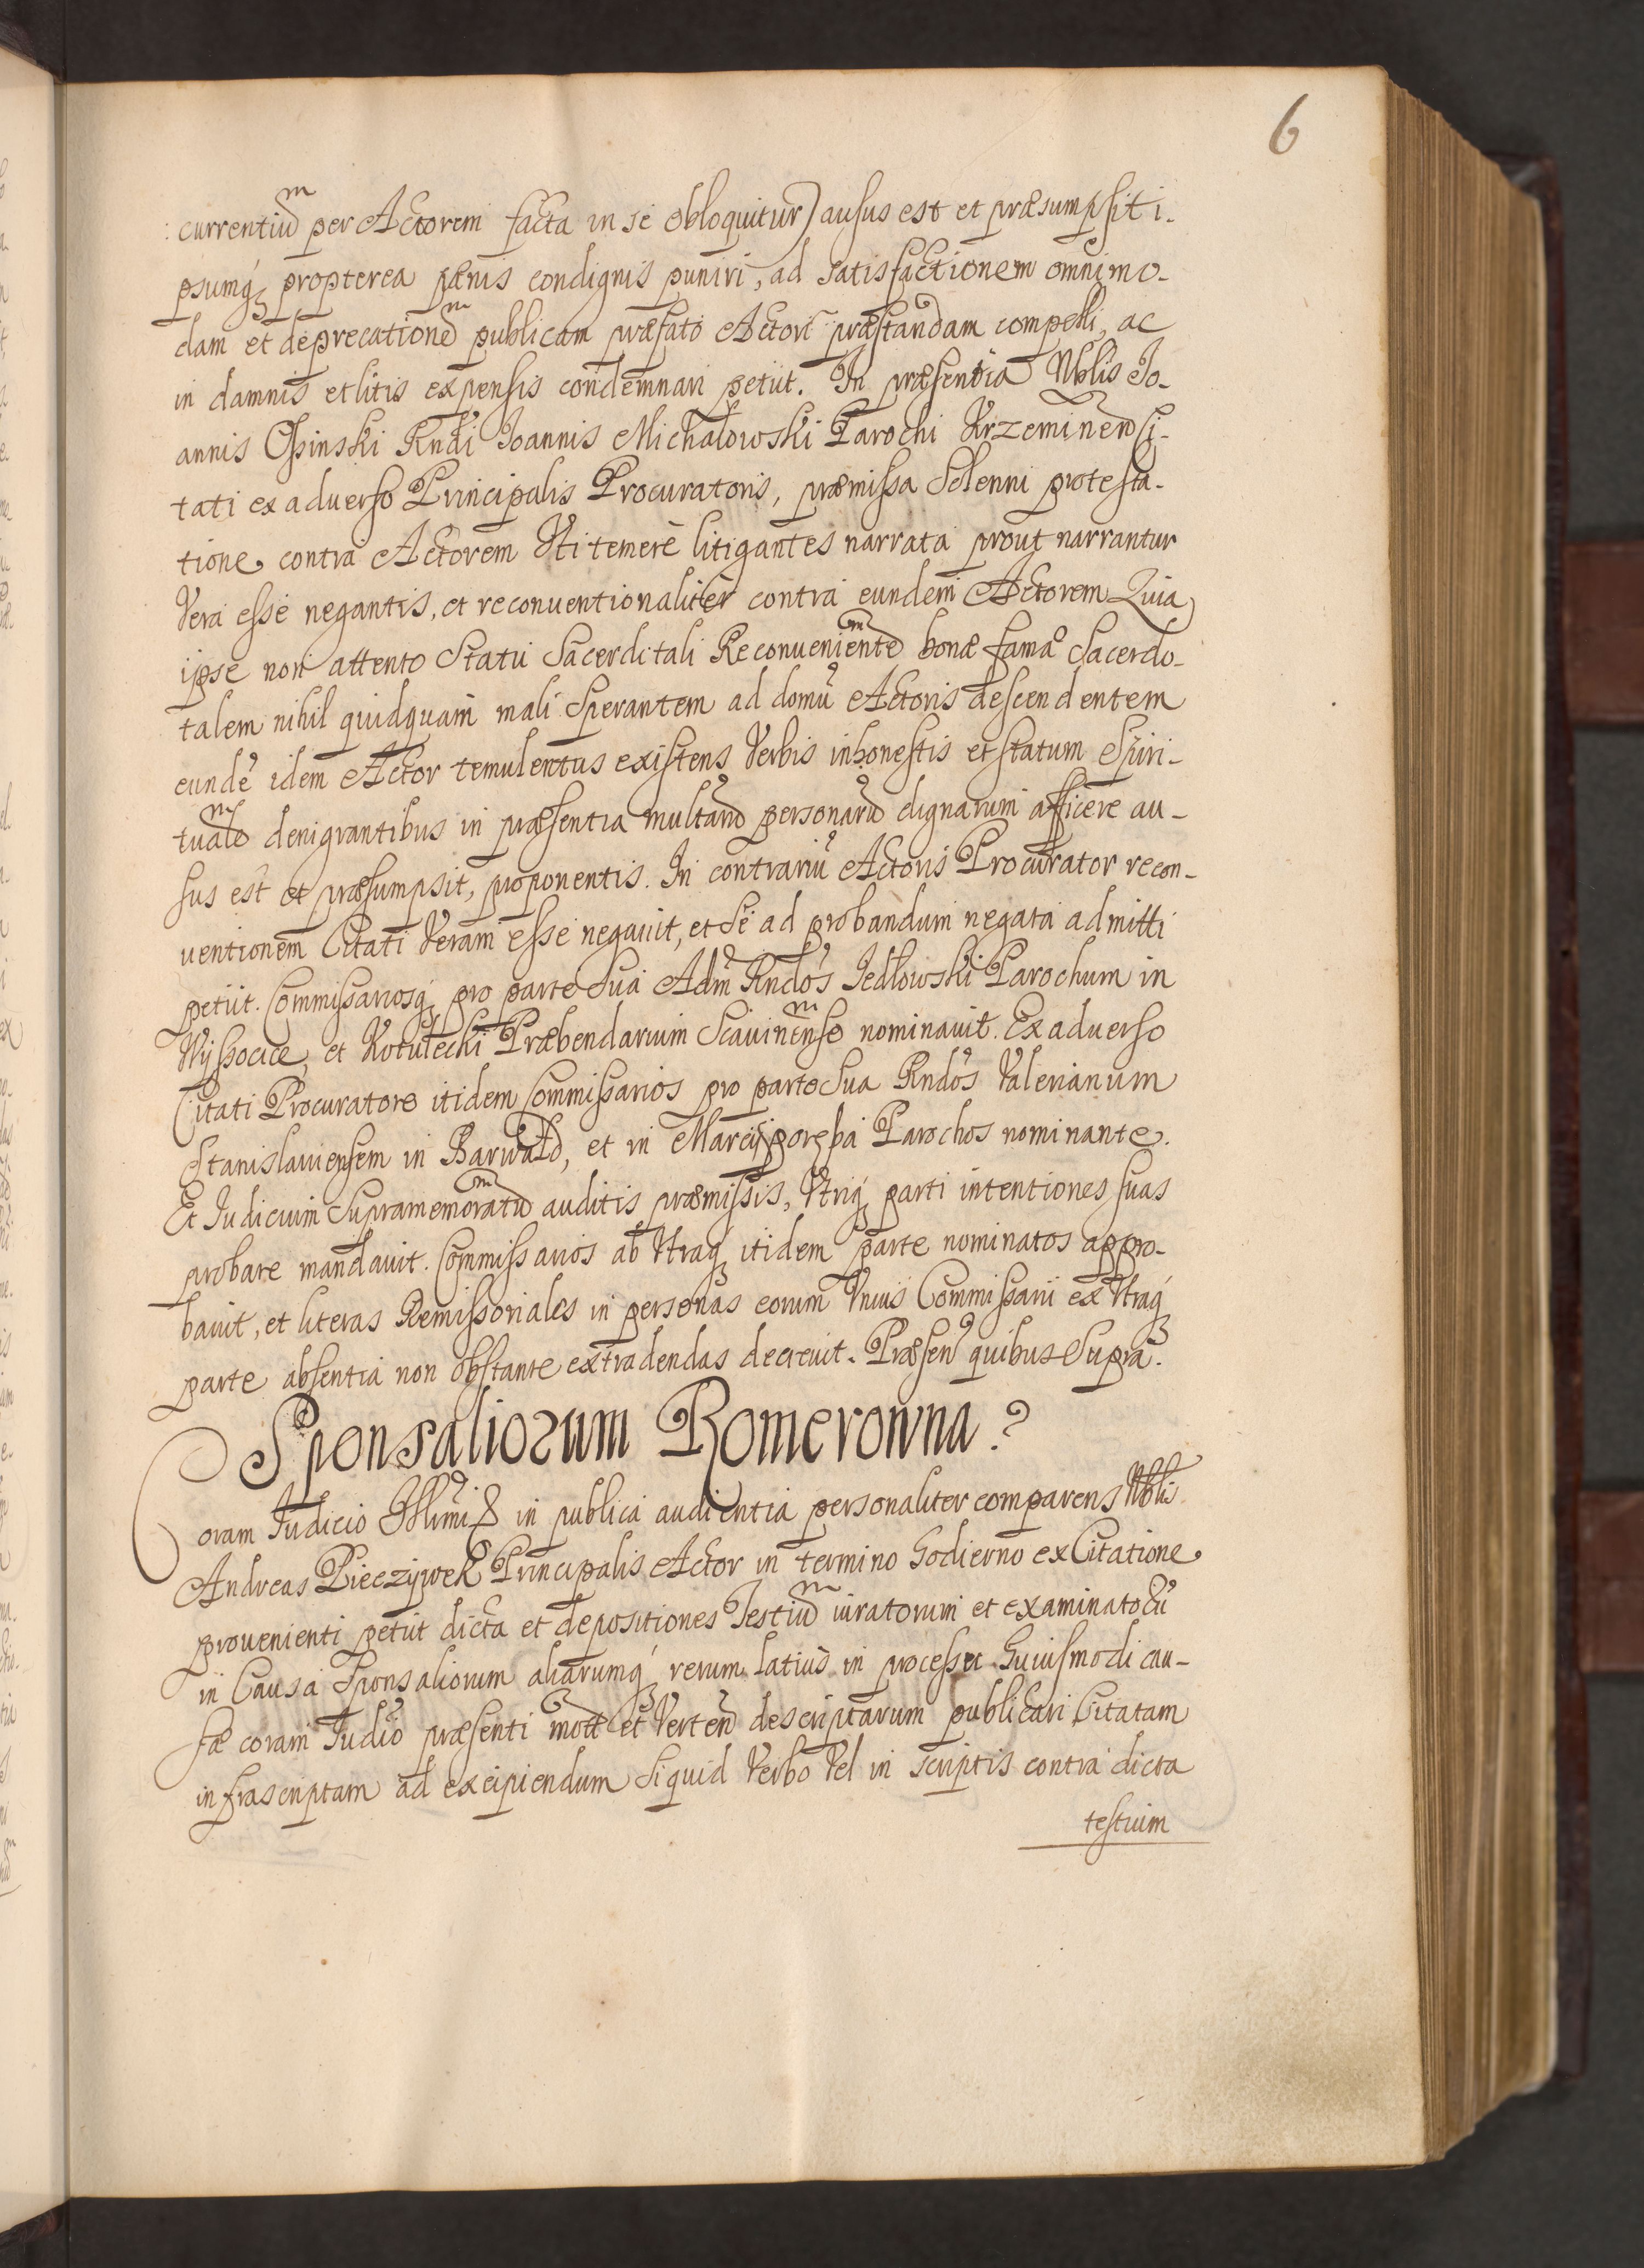 6
currentiu^m per Actorem facta in se obloquitur) ausus est et præsumpsit i-
psumq₃ propterea pænis condignis puniri, ad satisfactionem omnimo-
dam et deprecatione^m publicam præfato Actori præstandam compelli, ac
in damnis et litis expensis condemnari petiit. In præsentia Nblis Jo-
annis Ossinski Rndi Joannis Michałowski Parochi Krzeminen Ci-
tati ex aduerso Principalis Procuratoris, præmissa Solenni protesta-
tione contra Actorem Vti temere litigantes narrata prout narrantur
Vera esse negantis, et reconuentionaliter contra eundem Actorem Quia
ipse non attento Statu Sacerditali Reconueniente^m bonæ famæ Sacerdo-
talem nihil quidquam mali Sperantem ad domũ Actoris descendentem
eundẽ idem Actor temulentus existens Verbis inhonestis et statum Spiri-
tuale^m denigrantibus in præsentia multarũ personarũ dignarum afficere au-
sus est et præsumpsit, proponentis. In contrariũ Actoris Procurator recon-
uentionem Citati Veram esse negauit, et Se ad probandum negata admitti
petiit. Commissariosq₃ pro parte Sua Adm Rndos Jedlowski Parochum in
Wyssocice, et Kotulecki Præbendarium Scauinense^m nominauit. Ex aduerso
Citati Procuratore itidem Commissarios pro parte Sua Rndos Valerianum
Stanislauiensem in Barwałd, et in Marcyporęba Parochos nominante.
Et Iudicium Supramemoratu^m auditis præmissis, Vtriq₃ parti intentiones suas
probare mandauit. Commissarios ab Vtraq₃ itidem parte nominatos appro-
bauit, et literas Remissoriales in personas eorum Vnius Commissarii ex Vtraq₃
parte absentia non obstante extradendas decreuit. Præsen quibus Supra.
Sponsaliorum Romerowna.
Coram Iudicio Illimi & in publica audientia personaliter comparens Nblis
Andreas Pieczywek Principalis Actor in termino hodierno ex Citatione
prouenienti petiit dicta et depositiones Testiu^m iuratorum et examinatorũ
in Causa Sponsaliorum aliarumq₃ rerum latius in processu huiusmodi cau-
sæ coram Iudio præsenti mott et Verten descriptarum publicari Citatam
infrascriptam ad excipiendum Siquid Verbo Vel in scriptis contra dicta
testium